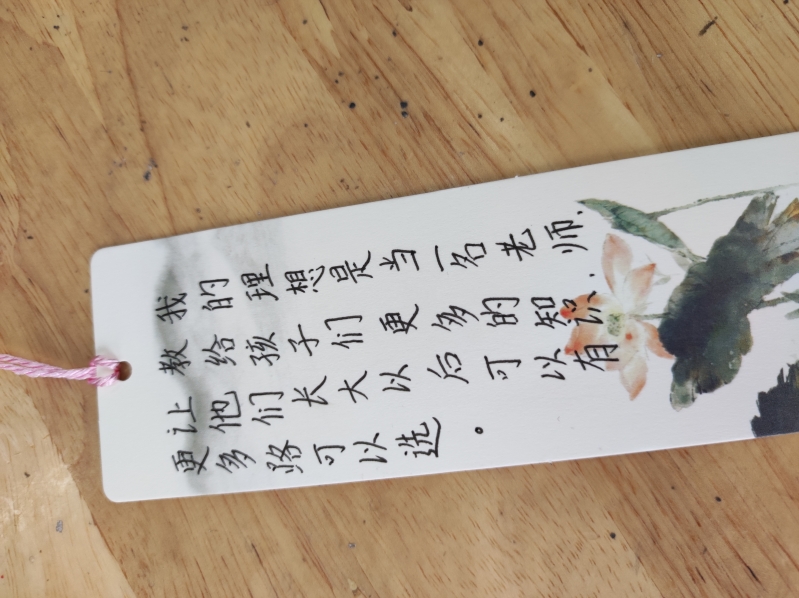 我的理想是当一名老师.
教给孩子们更多的知识.
让他们长大以后可以有
更多路可以选。